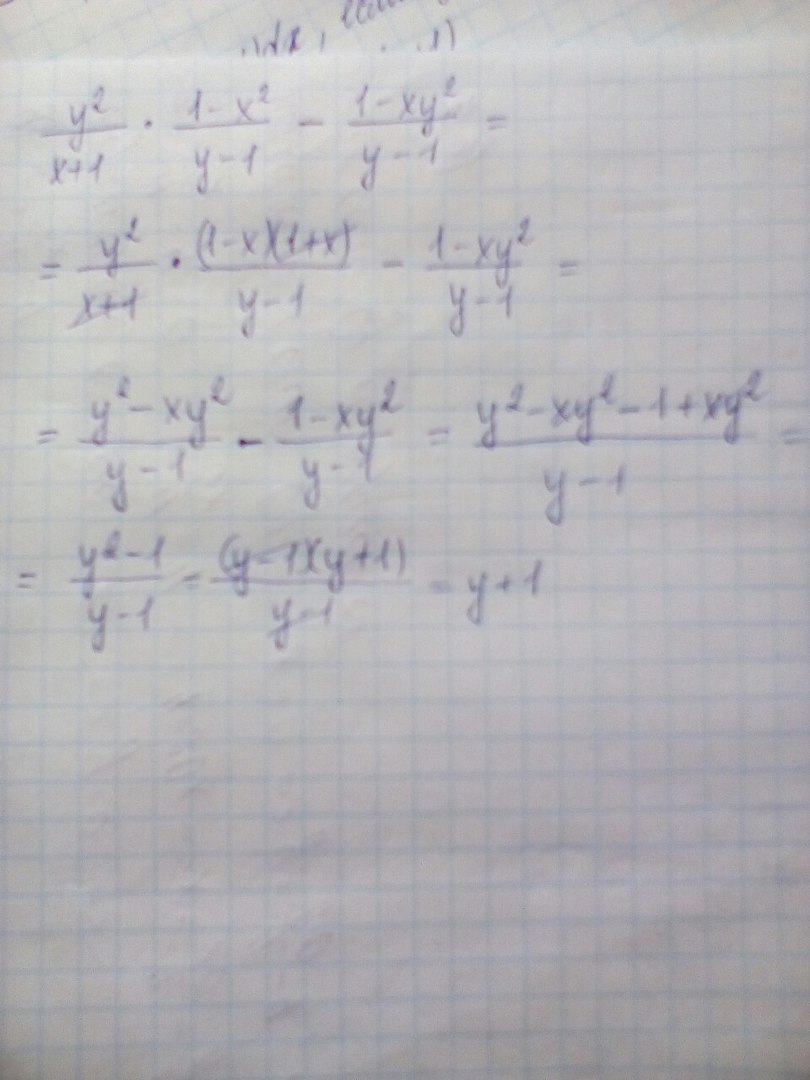 y²/(x+1) · (1-x²)/(y-1) - (1-xy²)/(y-1) =
= y²/(x+1) · (1-x)(1+x)/(y-1) - (1-xy²)/(y-1) =
= (y²-xy²)/(y-1) - (1-xy²)/(y-1) = (y²-xy²-1+xy²)/(y-1) =
= (y²-1)/(y-1) = (y-1)(y+1)/(y-1) = y+1